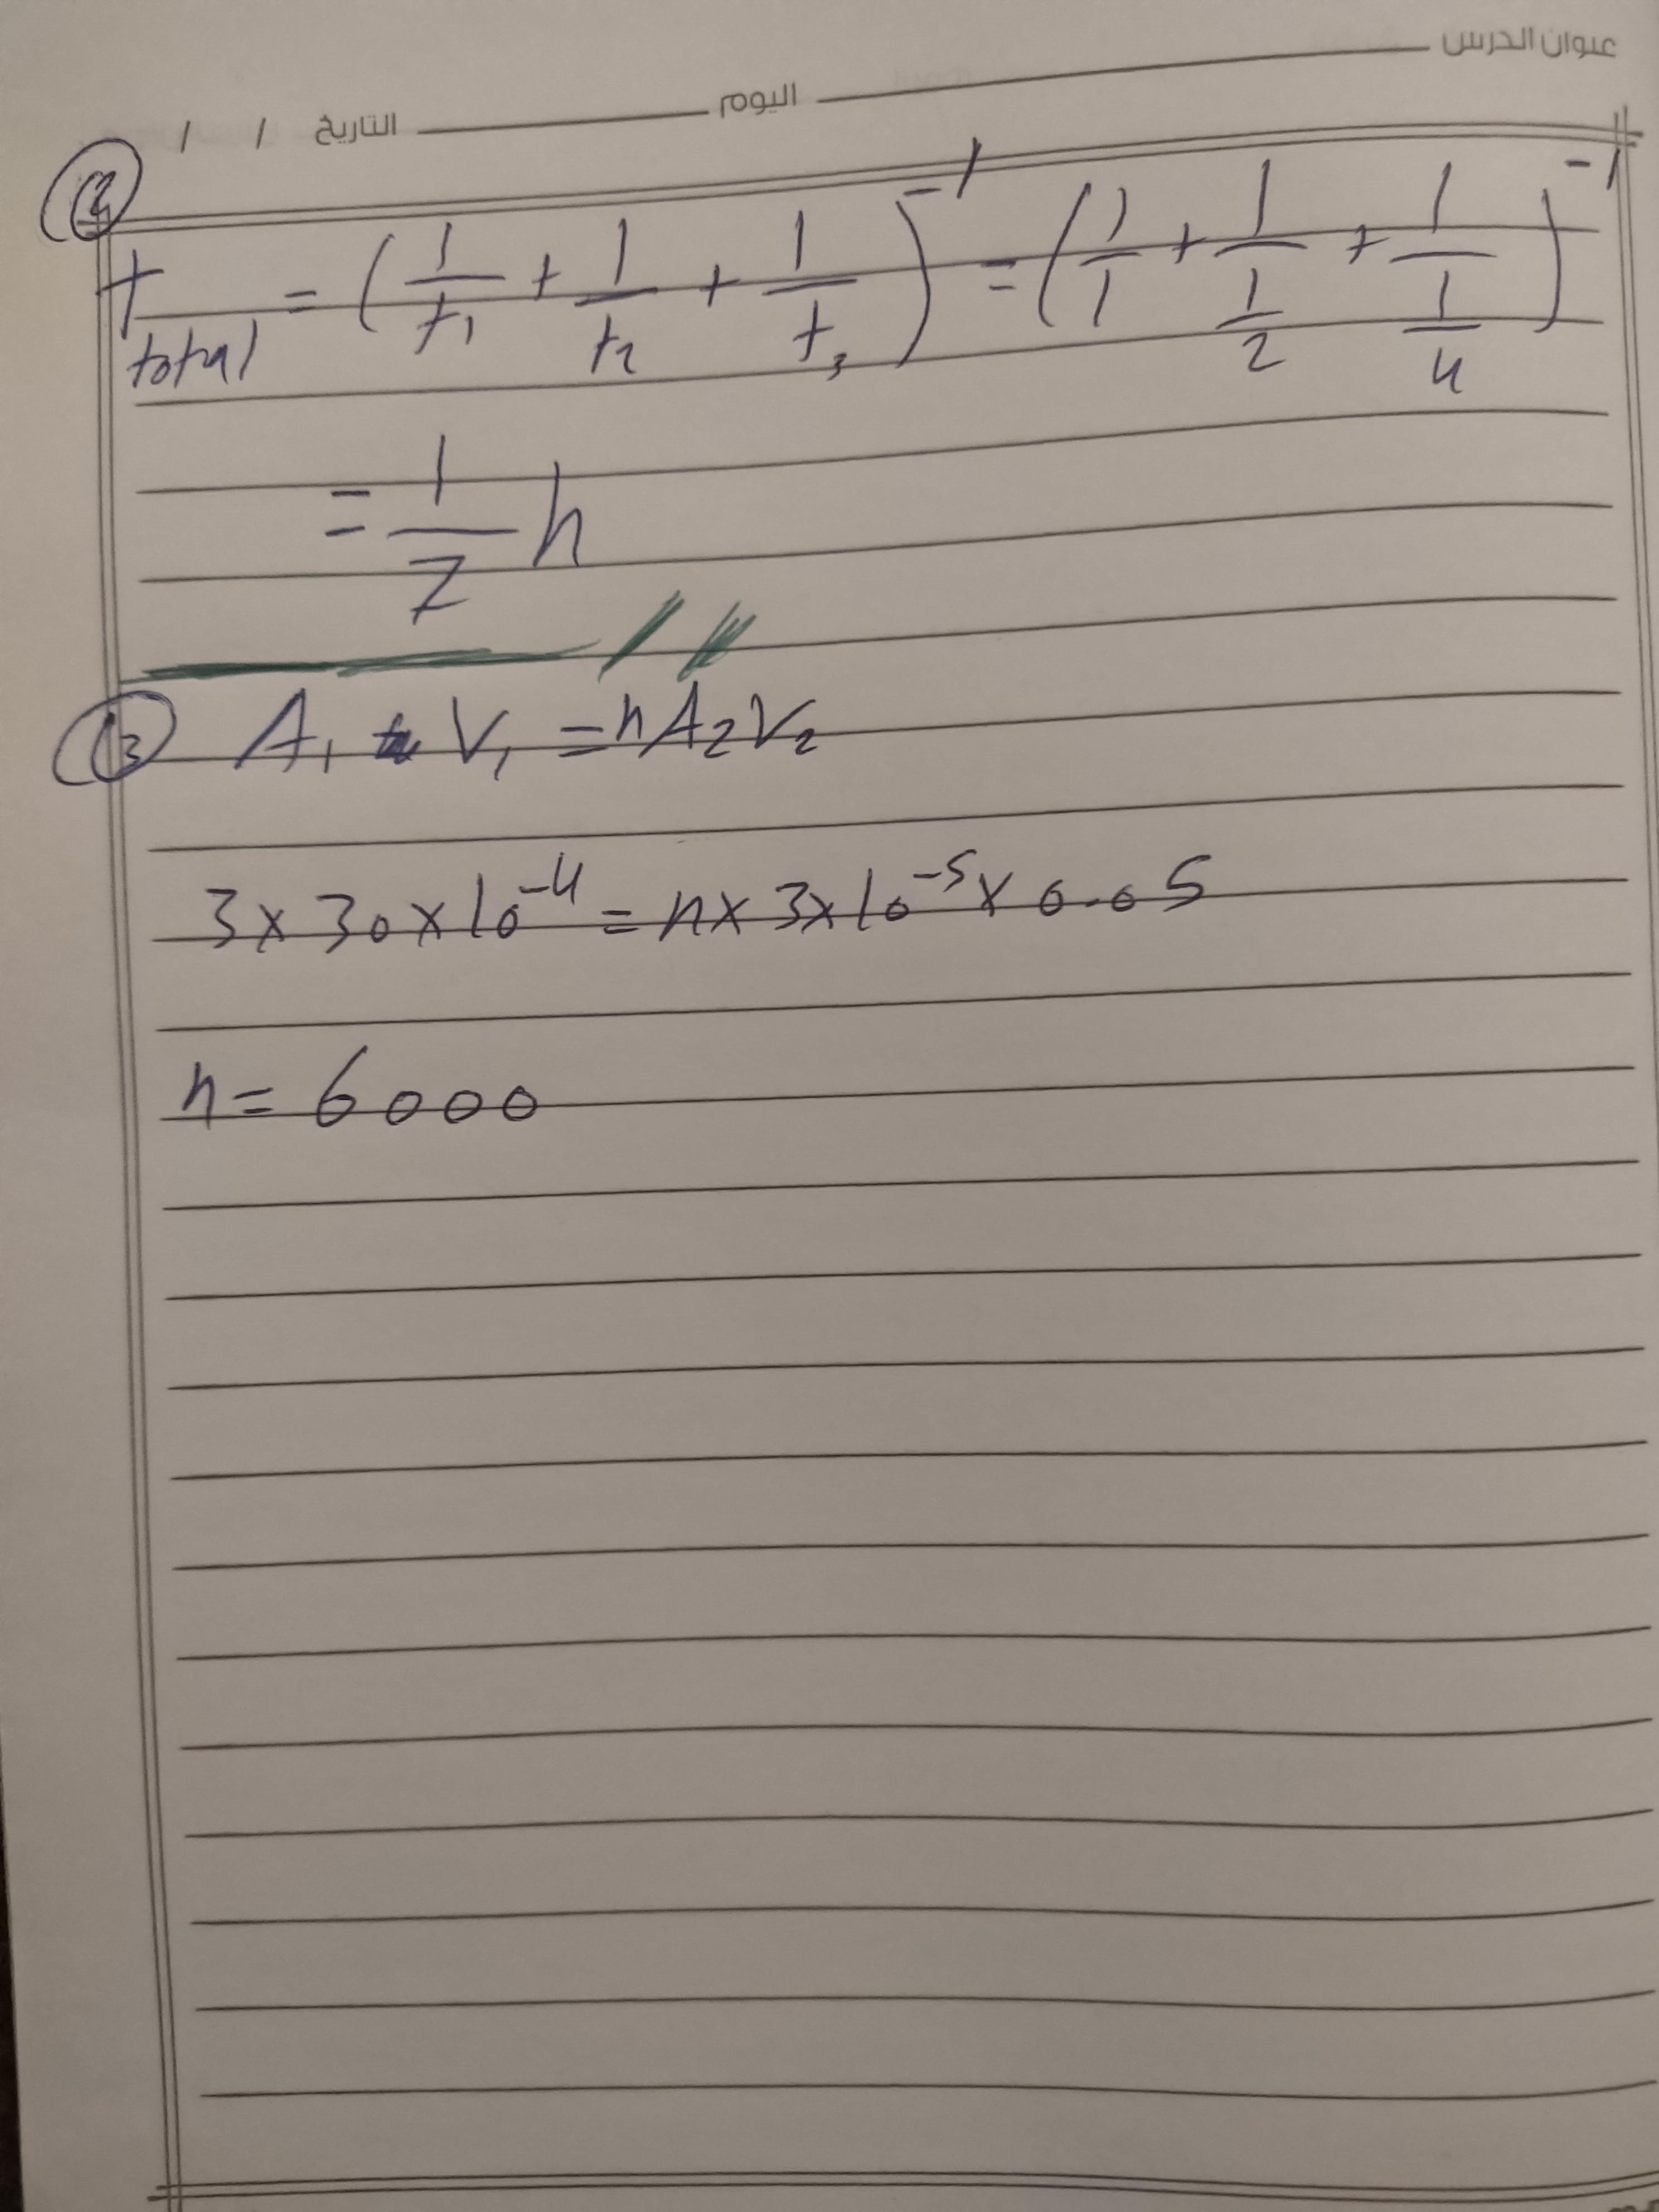 عنوان الدرس اليوم التاريخ / /
2
t total = (1/t₁ + 1/t₂ + 1/t₃)⁻¹ = (1/1 + 1/(1/2) + 1/(1/4))⁻¹
= 1/7 h
3 A₁ V₁ = n A₂ V₂
3 × 30 × 10⁻⁴ = n × 3 × 10⁻⁵ × 0.05
n = 6000